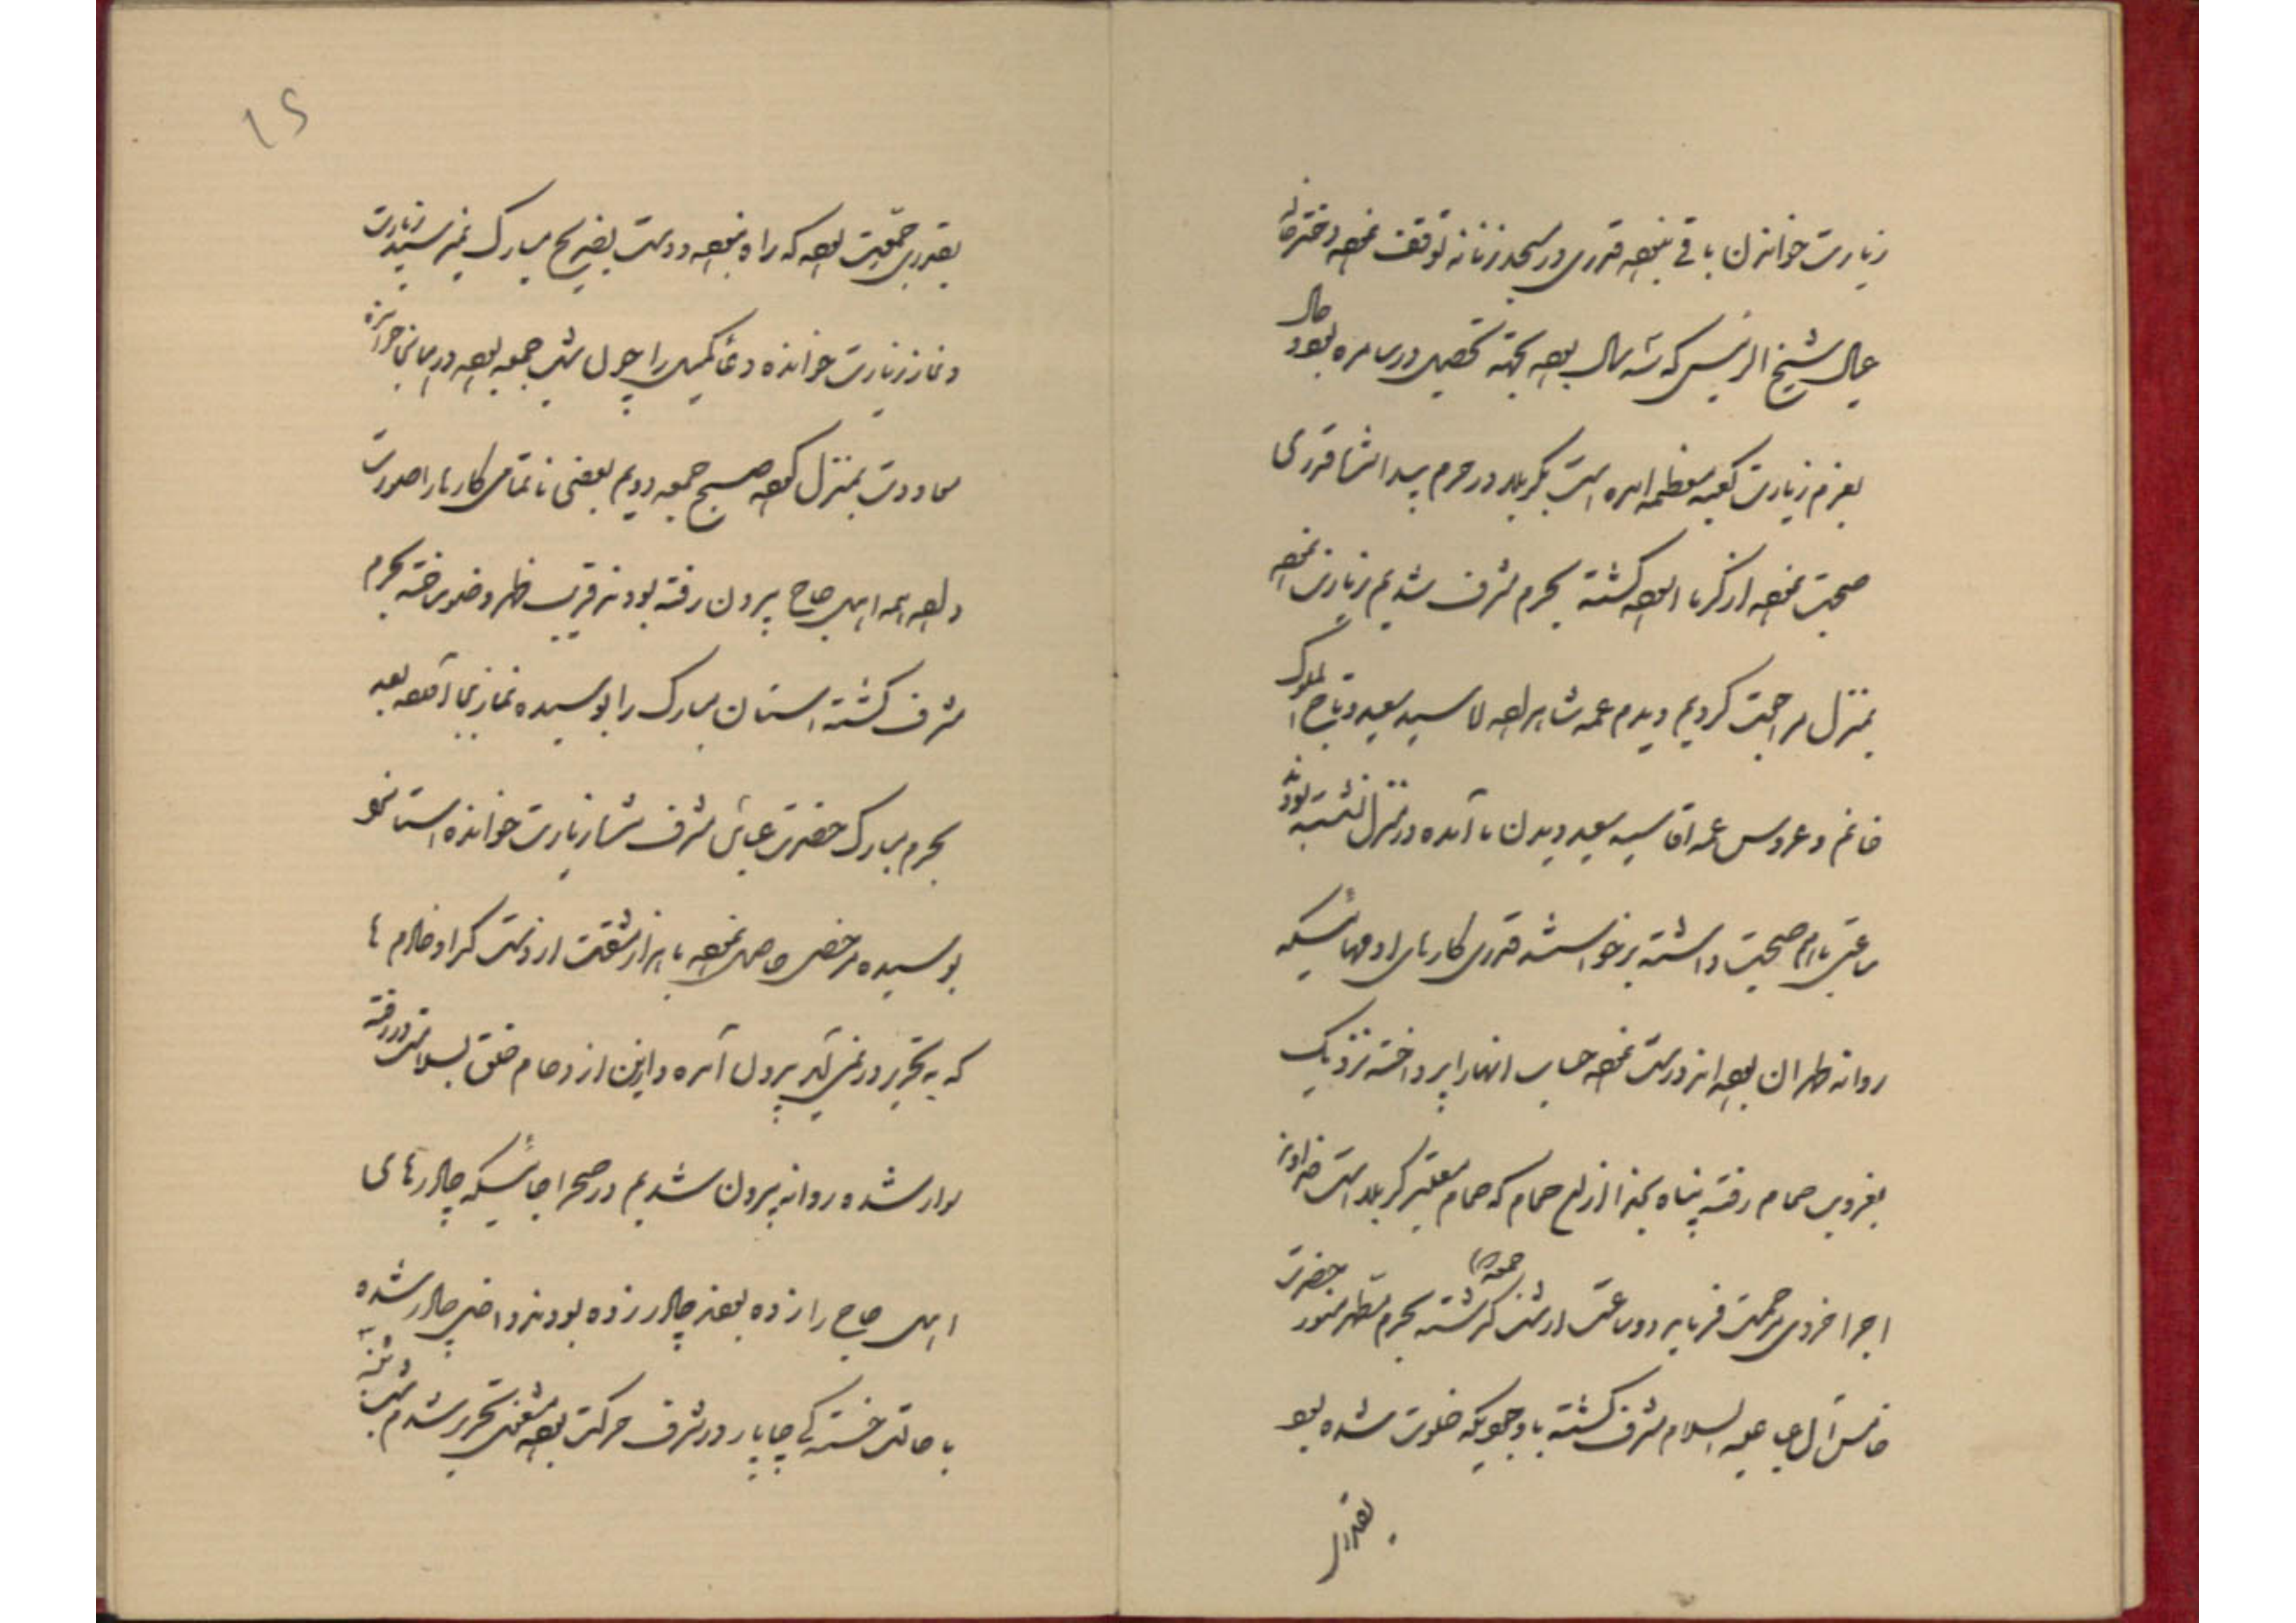 زیارت خواندن باقی نبوده قدری در مسجد زنانه توقف نموده دختر خاله
عیال شیخ الرئیس که سه سال بوده بجهته تحصیل در سامره بوده حال
بعزم زیارت کعبه معظمه آمده است بکربلا در حرم پیدا شد قدری
صحبت نموده از گرما آلوده گشته بحرم مشرف شدیم زیارت نموده
بمنزل مراجعت کردیم دیدم عمه شاهزاده سید سعید و تاج الملوک
خانم و عروس عمه آقا سید سعید دیدن ما آمده در منزل نشسته بودند
ساعتی باهم صحبت داشته برخواستند قدری کارهای آدمهائیکه
روانه طهران بوده اند درست نموده حساب آنها را پرداخته نزدیک
بغروب حمام رفته پناه بخدا از این حمام که حمام معتبر کربلا است خداوند
اجر اخروی مرحمت فرماید دو ساعت از شب جمعه گذشته بحرم مطهر منور حضرت
خامس آل عبا علیه السلام مشرف گشته با وجودیکه خلوت شده بود
بقدری
۱۵
بقدری جمعیت بوده که راه نبوده و دست بضریح مبارک نمیرسید زیارت
و نماز زیارت خوانده دعا کمیل را چون شب جمعه بوده در میانجی حرم
معاودت بمنزل نموده صبح جمعه دویم بعضی ناتمامی کارها را صورت
داده همه اهل حاج بیرون رفته بودند قریب ظهر وضو ساخته بحرم
مشرف گشته آستان مبارک را بوسیده نماز بجا آورده بعد
بحرم مبارک حضرت عباس مشرف شده زیارت خوانده آستانه
بوسیده مرخصی حاصل نموده با هزار مشقت از دست گدا و خادم ها
که به تحریر در نمی آید بیرون آمده و از این ازدحام خلق بسلامتی در رفته
سوار شده روانه بیرون شدیم در صحرا جائیکه چادرهای
اهل حاج را زده بودند چادر زده بودند داخل چادر شده
با حالت خستگی چاپار در شرف حرکت بوده مشغول تحریر شدم شب